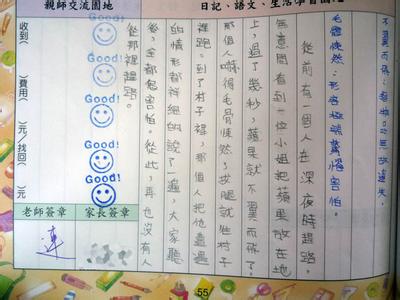 日記、語文、生活學習園
不翼而飛:無故遺失。
毛骨悚然:形容極端驚惶害怕。
從前有一個人在深夜時趕路。
無意間看到一位小姐把蘋果放在地
上,過了幾秒,蘋果就不翼而飛了!
那個人嚇得毛骨悚然,拔腿就往村子
裡跑。到了村子裡,那個人把他遭遇
的情形都詳細的說了一遍,大家聽
後,全都很害怕。從此,再也沒有人
從那裡趕路。
親師交流園地
Good!
Good!
Good!
Good!
收到( )費用( )元/找回( )元
老師簽章
家長簽章
連
55